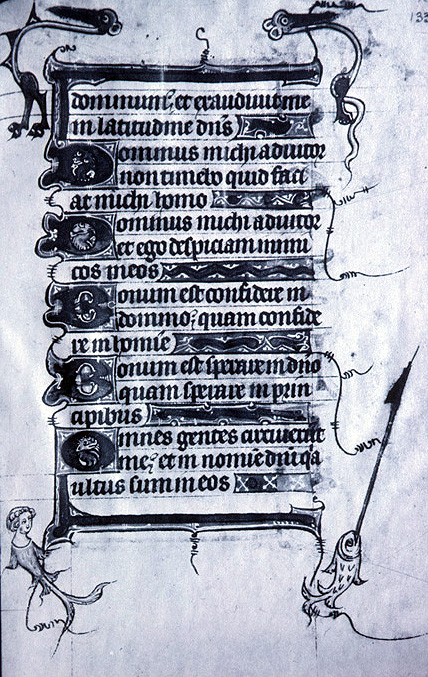 133
dominum, et exaudivit me
in latitudine dn̄s
Dominus michi adiutor
non timebo quid faci
at michi homo
Dominus michi adiutor
et ego despiciam inimi
cos meos
Bonum est confidere in
domino; quam confide
re in homīe
Bonum est sperare in dn̄o
quam sperare in prin
cipibus
Omnes gentes circuierūt
me; et in nomīe dn̄i q̄a
ultus sum in eos